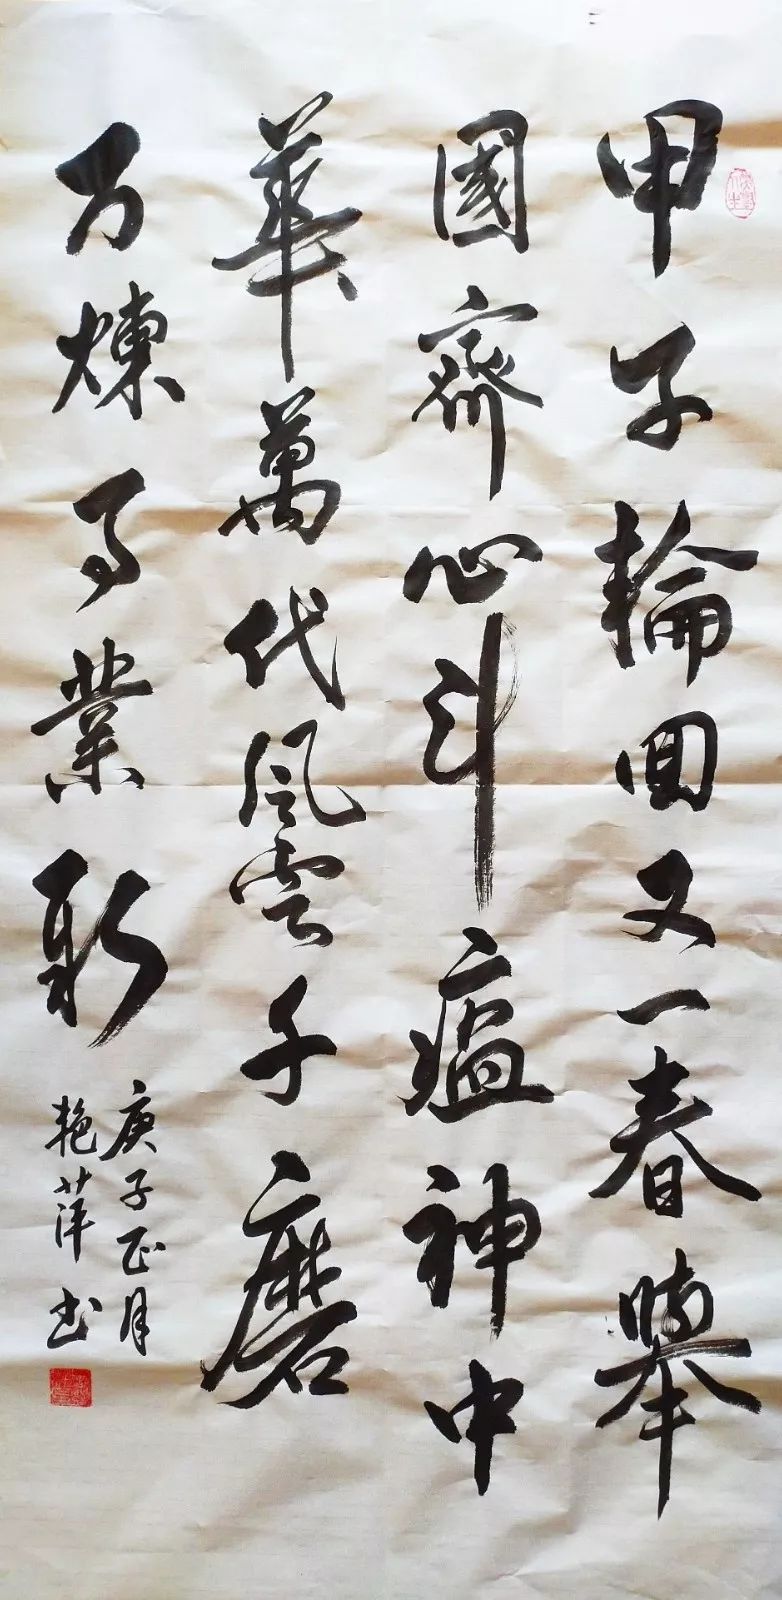 甲子輪回又一春舉
國齊心斗瘟神中
華萬代風雲千磨
百煉事業新
庚子正月
艳萍书